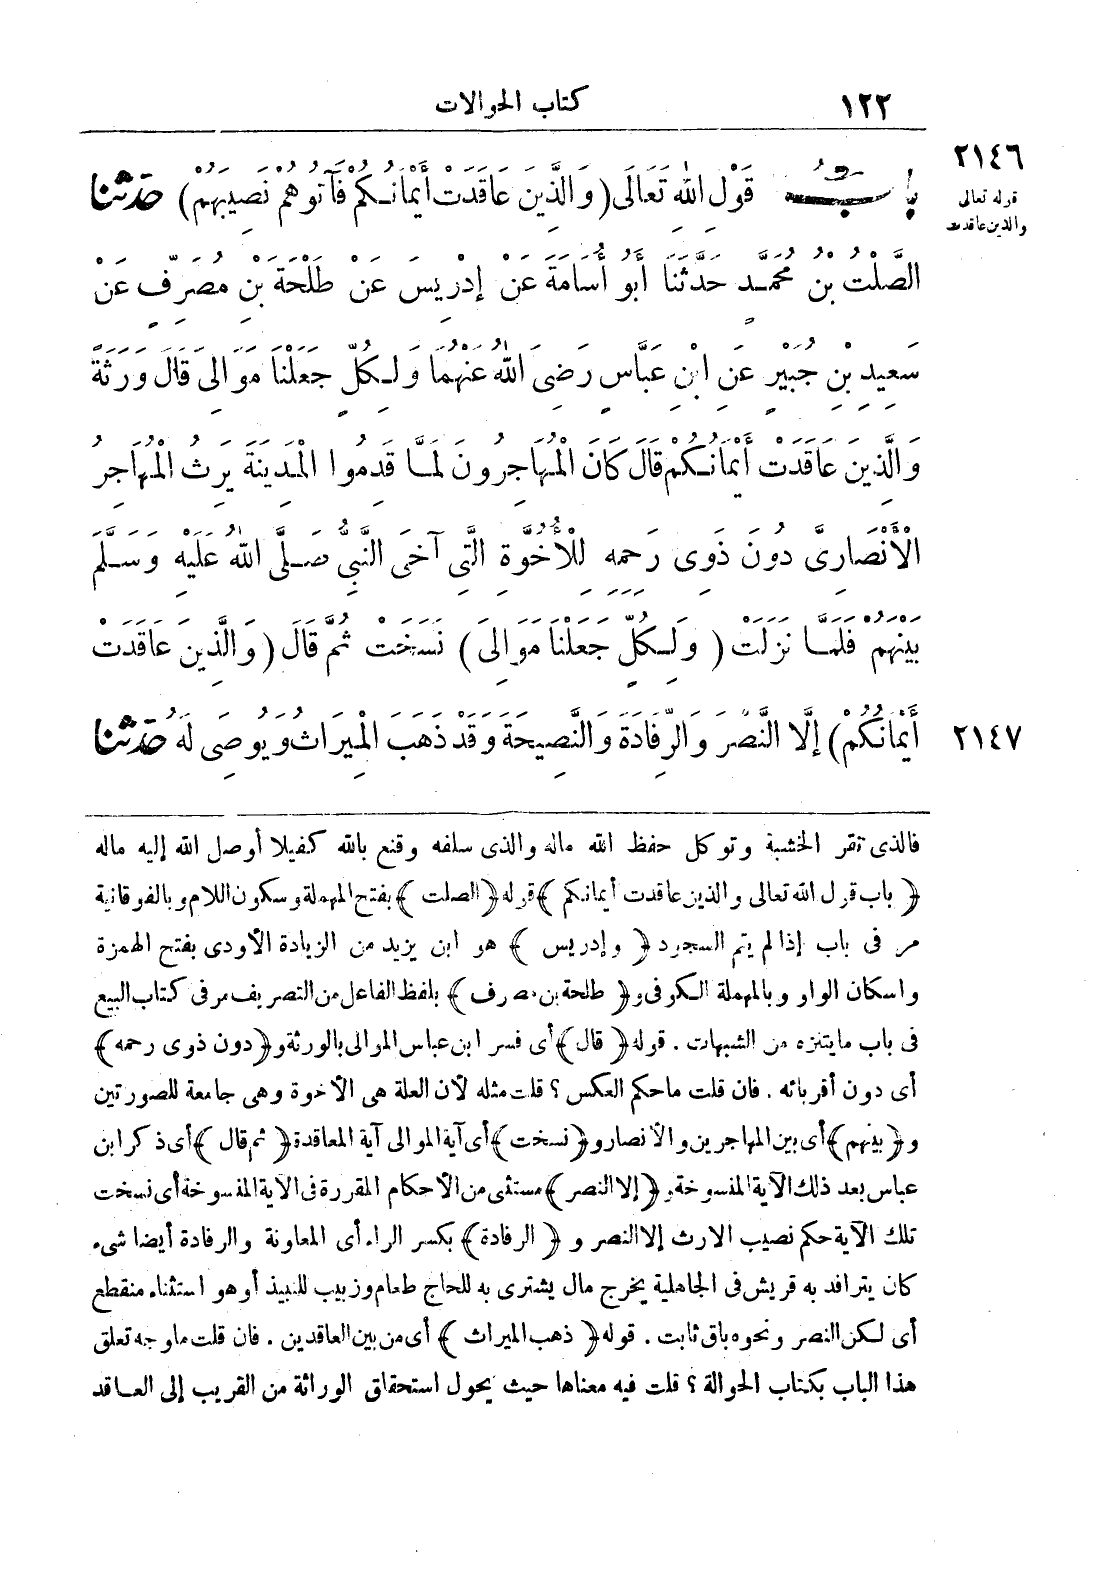 ١٢٢ كتاب الحوالات
٢١٤٦
قوله تعالى
والذين عاقدت
بَابُ قَوْلِ اللهِ تَعَالَى (وَالَّذِينَ عَاقَدَتْ أَيْمَانُكُمْ فَآتُوهُمْ نَصِيبَهُمْ) حَدَّثَنَا
الصَّلْتُ بْنُ مُحَمَّدٍ حَدَّثَنَا أَبُو أُسَامَةَ عَنْ إِدْرِيسَ عَنْ طَلْحَةَ بْنِ مُصَرِّفٍ عَنْ
سَعِيدِ بْنِ جُبَيْرٍ عَنِ ابْنِ عَبَّاسٍ رَضِىَ اللهُ عَنْهُمَا وَلِكُلٍّ جَعَلْنَا مَوَالِىَ قَالَ وَرَثَةً
وَالَّذِينَ عَاقَدَتْ أَيْمَانُكُمْ قَالَ كَانَ الْمُهَاجِرُونَ لَمَّا قَدِمُوا الْمَدِينَةَ يَرِثُ الْمُهَاجِرُ
الْأَنْصَارِىَّ دُونَ ذَوِى رَحِمِهِ لِلْأُخُوَّةِ الَّتِى آخَى النَّبِىُّ صَلَّى اللهُ عَلَيْهِ وَسَلَّمَ
بَيْنَهُمْ فَلَمَّا نَزَلَتْ (وَلِكُلٍّ جَعَلْنَا مَوَالِىَ) نَسَخَتْ ثُمَّ قَالَ (وَالَّذِينَ عَاقَدَتْ
أَيْمَانُكُمْ) إِلَّا النَّصْرَ وَالرِّفَادَةَ وَالنَّصِيحَةَ وَقَدْ ذَهَبَ الْمِيرَاثُ وَيُوصَى لَهُ حَدَّثَنَا
٢١٤٧
فالذى نقر الخشبة وتوكل حفظ الله ماله والذى سلفه وقنع بالله كفيلا أوصل الله إليه ماله
﴿ باب قول الله تعالى والذين عاقدت أيمانكم ﴾ قوله ﴿ الصلت ﴾ بفتح المهملة وسكون اللام وبالفوقانية
مر فى باب إذا لم يتم السجود ﴿ وإدريس ﴾ هو ابن يزيد من الزيادة الأودى بفتح الهمزة
واسكان الواو وبالمهملة الكوفى و﴿ طلحة بن مصرف ﴾ بلفظ الفاعل من التصريف مر فى كتاب البيع
فى باب ما يتنزه من الشبهات . قوله ﴿ قال ﴾ أى فسر ابن عباس الموالى بالورثة و﴿ دون ذوى رحمه ﴾
أى دون أقربائه . فان قلت ما حكم العكس ؟ قلت مثله لأن العلة هى الأخوة وهى جامعة للصورتين
و﴿ بينهم ﴾ أى بين المهاجرين والأنصار و﴿ نسخت ﴾ أى آية الموالى آية المعاقدة ﴿ ثم قال ﴾ أى ذكر ابن
عباس بعد ذلك الآية المنسوخة و﴿ إلا النصر ﴾ مستثنى من الأحكام المقررة فى الآية المنسوخة أى نسخت
تلك الآية حكم نصيب الارث إلا النصر و ﴿ الرفادة ﴾ بكسر الراء أى المعاونة والرفادة أيضا شىء
كان يترافد به قريش فى الجاهلية يخرج مال يشترى به للحاج طعام وزبيب للنبيذ أو هو استثناء منقطع
أى لكن النصر ونحوه باق ثابت . قوله ﴿ ذهب الميراث ﴾ أى من بين العاقدين . فان قلت ما وجه تعلق
هذا الباب بكتاب الحوالة ؟ قلت فيه معناها حيث يحول استحقاق الوراثة من القريب إلى العاقد